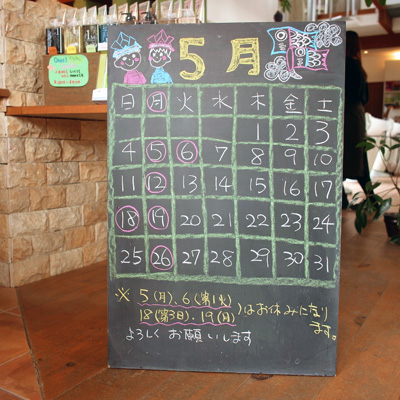 5月
日 月 火 水 木 金 土
1 2 3
4 5 6 7 8 9 10
11 12 13 14 15 16 17
18 19 20 21 22 23 24
25 26 27 28 29 30 31
※ 5(月)、6(第1火)
18(第3日)、19(月)
はお休みになり
ます。
よろしく お願いします